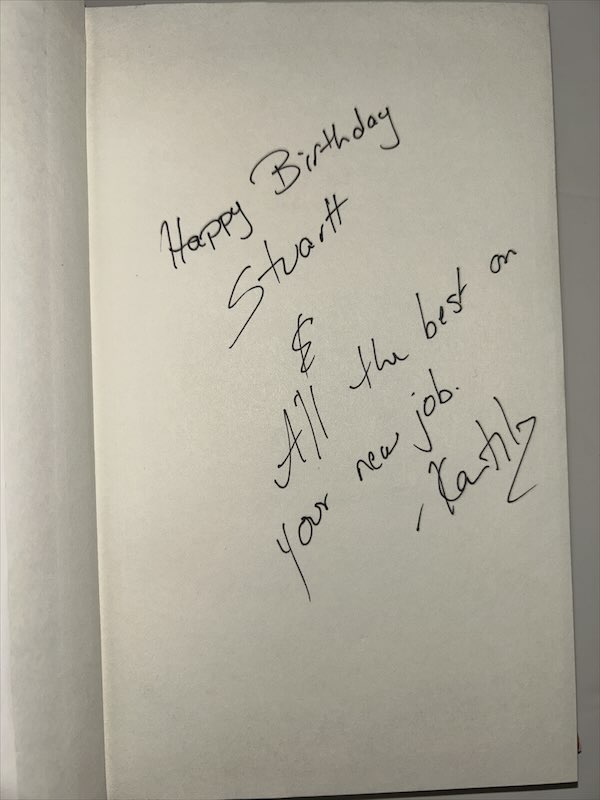 Happy Birthday
Stuart
&
All the best on
your new job.